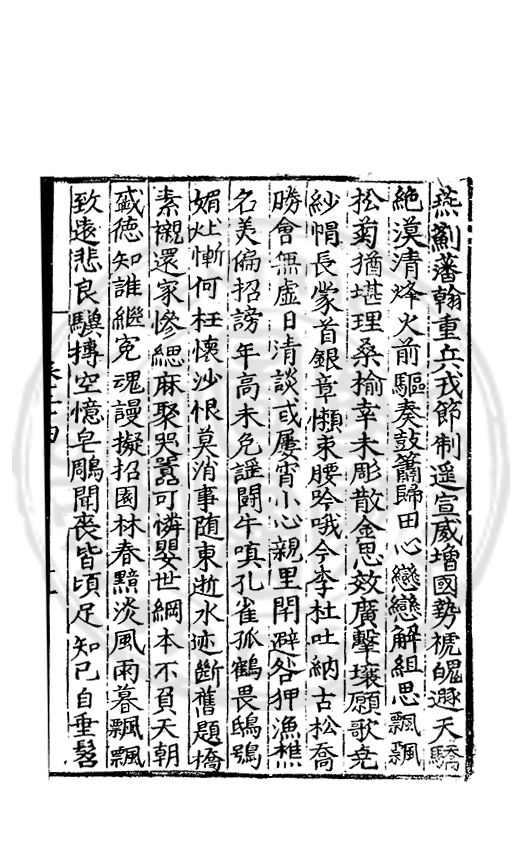 燕薊藩翰重兵戎節制遥宣威增國勢褫魄遯天驕
絶漠清烽火前驅奏鼓簫歸田心戀戀解組思飄飄
松菊猶堪理桑榆幸未彫散金思效廣擊壤願歌堯
紗帽長蒙首銀章懶束腰吟哦今李杜吐納古松喬
勝會無虛日清談或屢宵小心親里閈避咎狎漁樵
名美偏招謗年高未免謡鬪牛嗔孔雀孤鶴畏鴟鴞
媚灶慚何枉懷沙恨莫消事随東逝水迹斷舊題橋
素櫬還家慘緦麻聚哭嚣可憐嬰世綱本不負天朝
盛德知誰繼寃魂謾擬招園林春黯淡風雨暮飄飄
致遠悲良驥摶空憶皂鵰聞喪皆頃足知已自垂髫
卷二十四